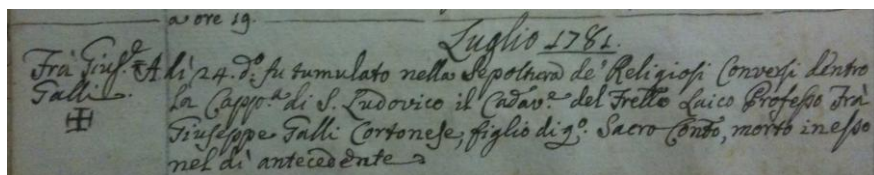 a ore 19.
Luglio 1781.
Fra Gius.e A di 24. d.o fu tumulato nella Sepoltura de' Religiosi Conversi dentro
Galli. la Capp.a di S. Ludovico il Cadav.e del Frello Laico Professo Frà
Giuseppe Galli Cortonese, figlio di q.o Sacro Conto, morto in esso
nel dì antecedente